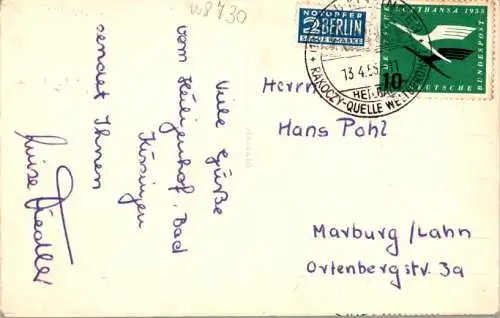 W8730
NOTOPFER
2 BERLIN
STEUERMARKE
DEUTSCHE LUFTHANSA 1955
10
DEUTSCHE BUNDESPOST
13.4.55
RAKOCZY-QUELLE
Viele Grüße
vom Heiligenhof, Bad
Kissingen
sendet Ihnen
Luise Fiedler
Herrn
Hans Pohl
Marburg/Lahn
Ortenbergstr. 3a